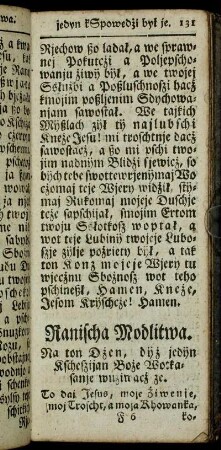 jedyn kSpowedźi był je. 131
Rjechow ßo ladał, a we spraw-
nej Pokutczi a Poljepscho-
wanju žiwy był, a we twojej
Sslužbi a Poßluschnosżi hacż
kmojim poßljenim Sdychowa-
njam sawostał. We tajkich
Myßlach žył ty najlubschi
Kneže Jesu! mi troschtnje dacż
sawostacż, a ßo mi pschi two-
jim nadnym Blidżi sjewicż, so
bych tebe swottewrjenymaj Wo-
cżomaj teje Wjery widżił, sty-
maj Rukomaj mojeje Duschje
tcże sapschijał, smojim Ertom
twoju Sslotkosż woptał, a
wot teje Lubiny twojeje Lubo-
sżje zylje požrjety był, a tak
ton Konz mojeje Wjery tu
wjecznu Sbožnosż wot teho
pschineßł, Hamen, Kneże,
Jesom Kryschcże! Hamen.
Ranischa Modlitwa.
Na ton Dżen, dyż jedyn
Kschesżijan Bože Wotka-
sanje wuziwacż ze.
To dai Jesus, moje Žiwenje,
moj Trojscht, a moza Khowanka,
F 6 ko-